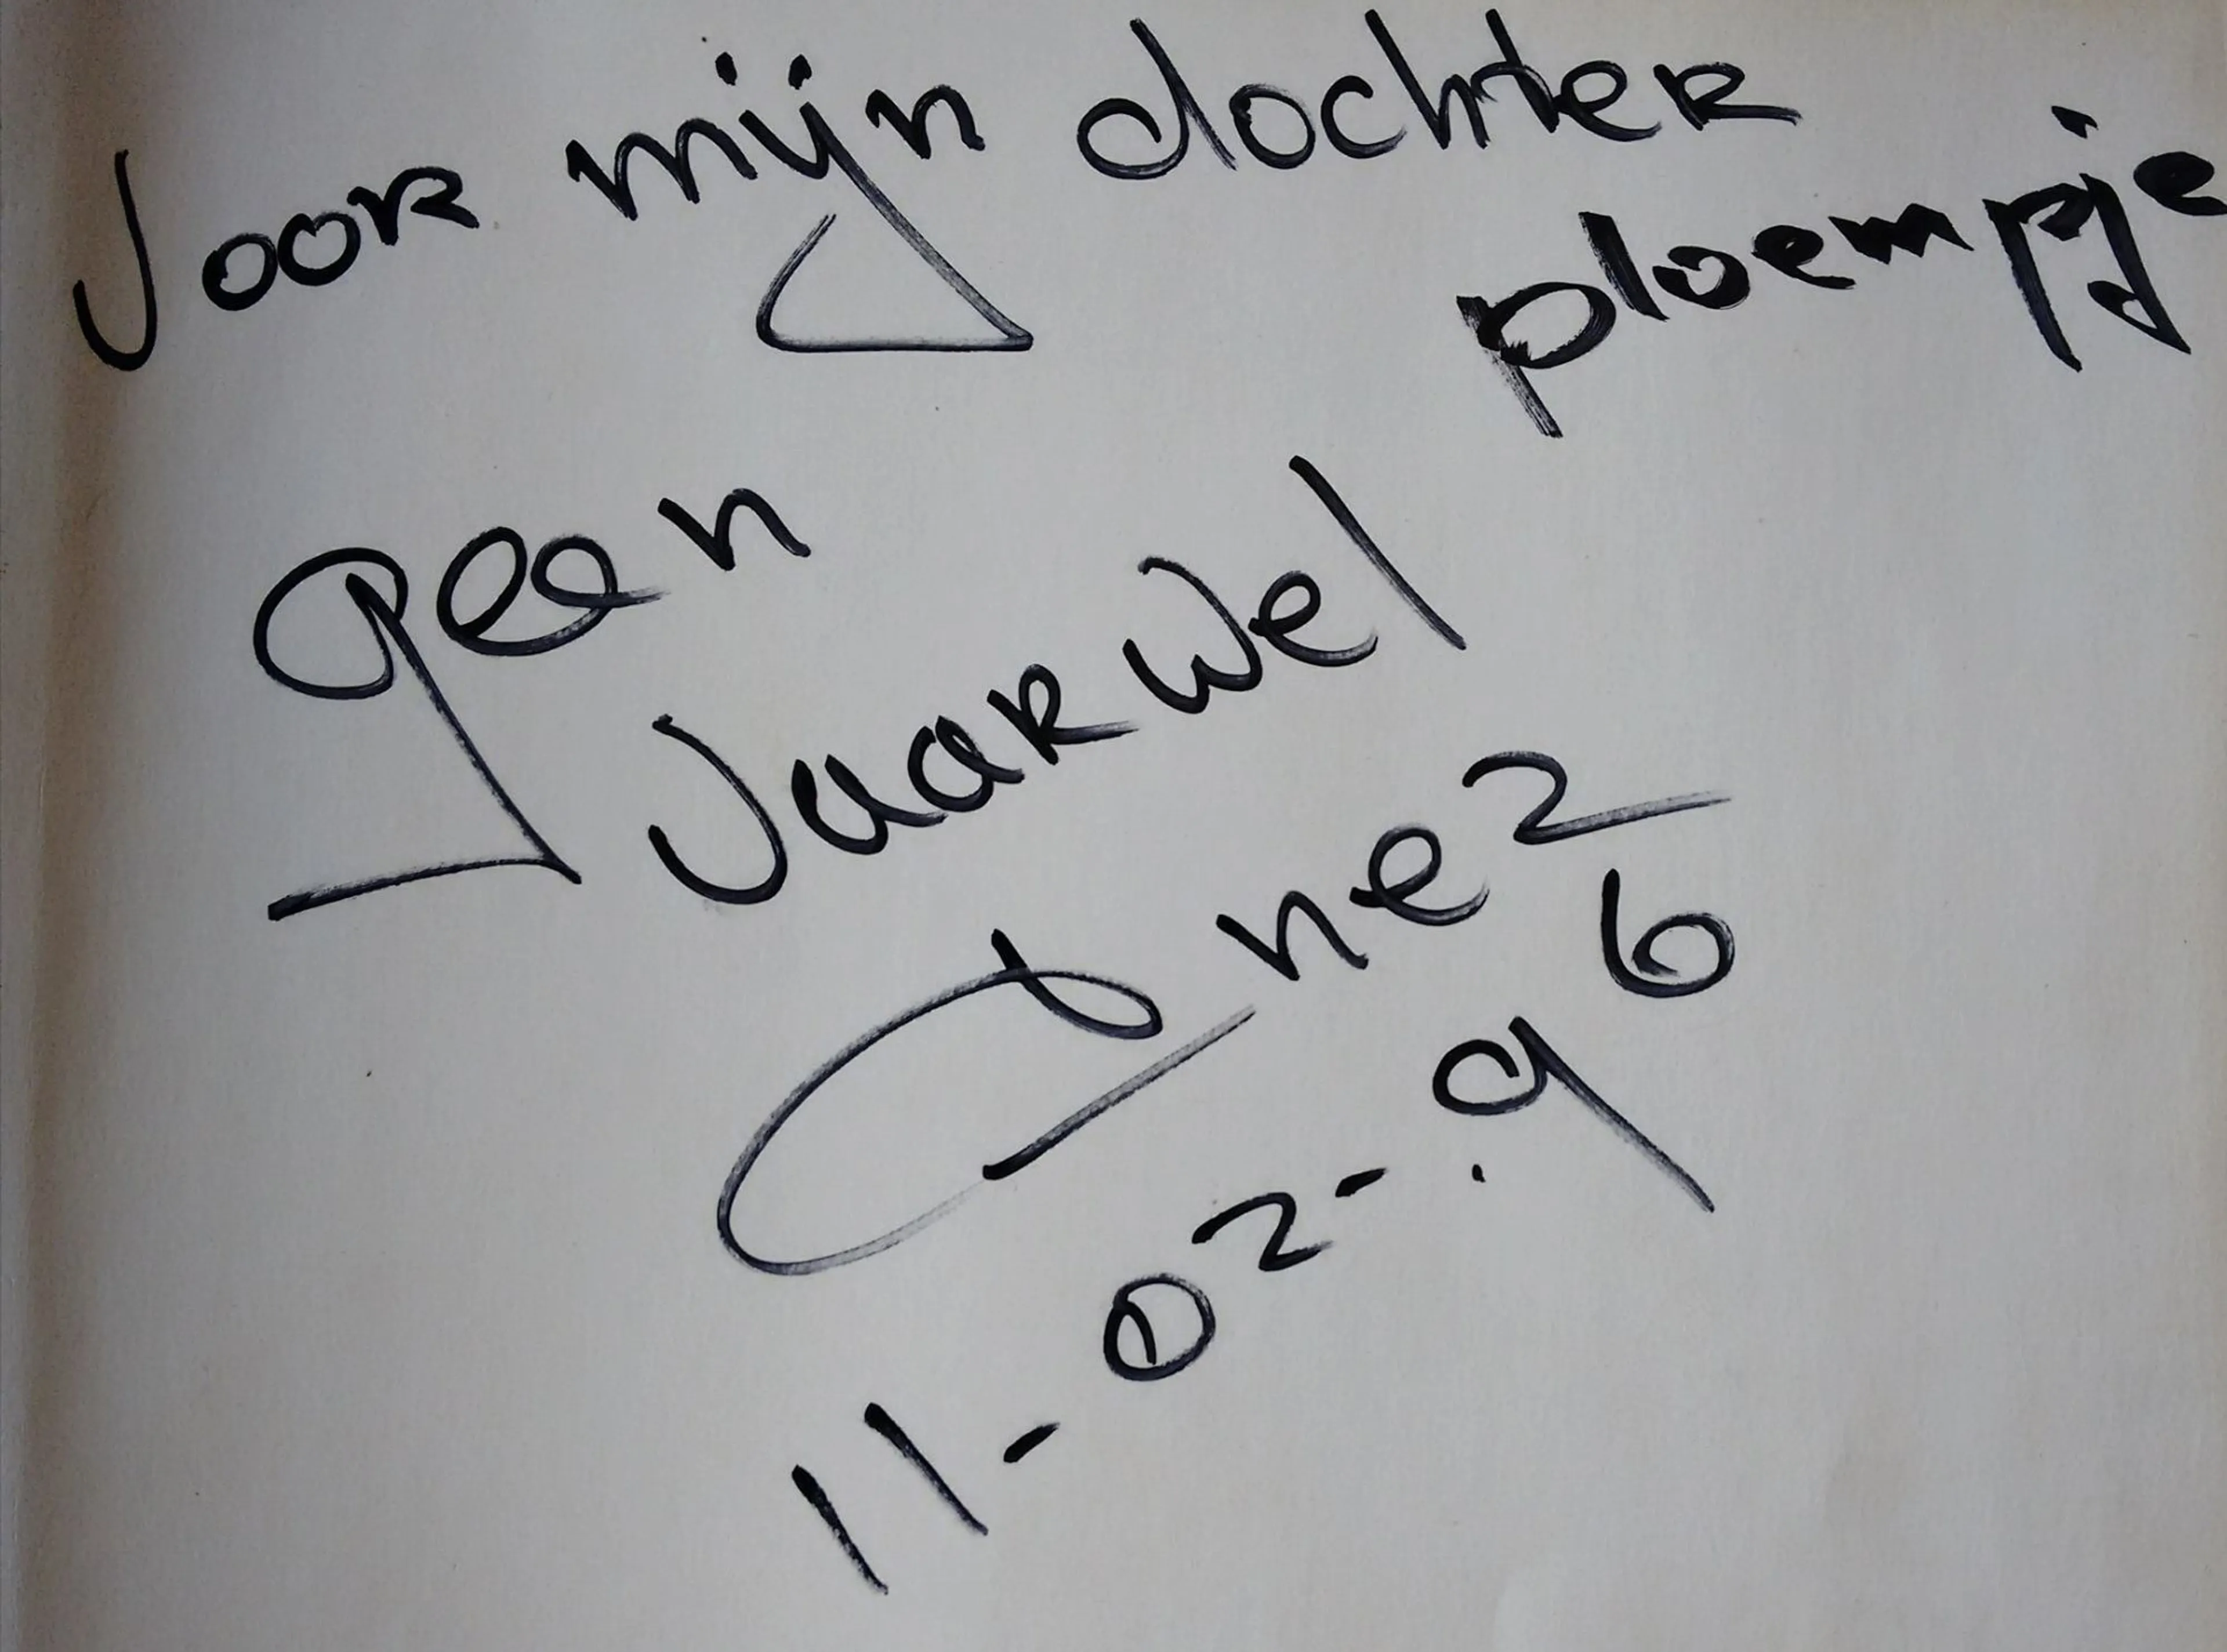 Voor mijn dochter
ploempje
geen
Vaarwel
11-02-96